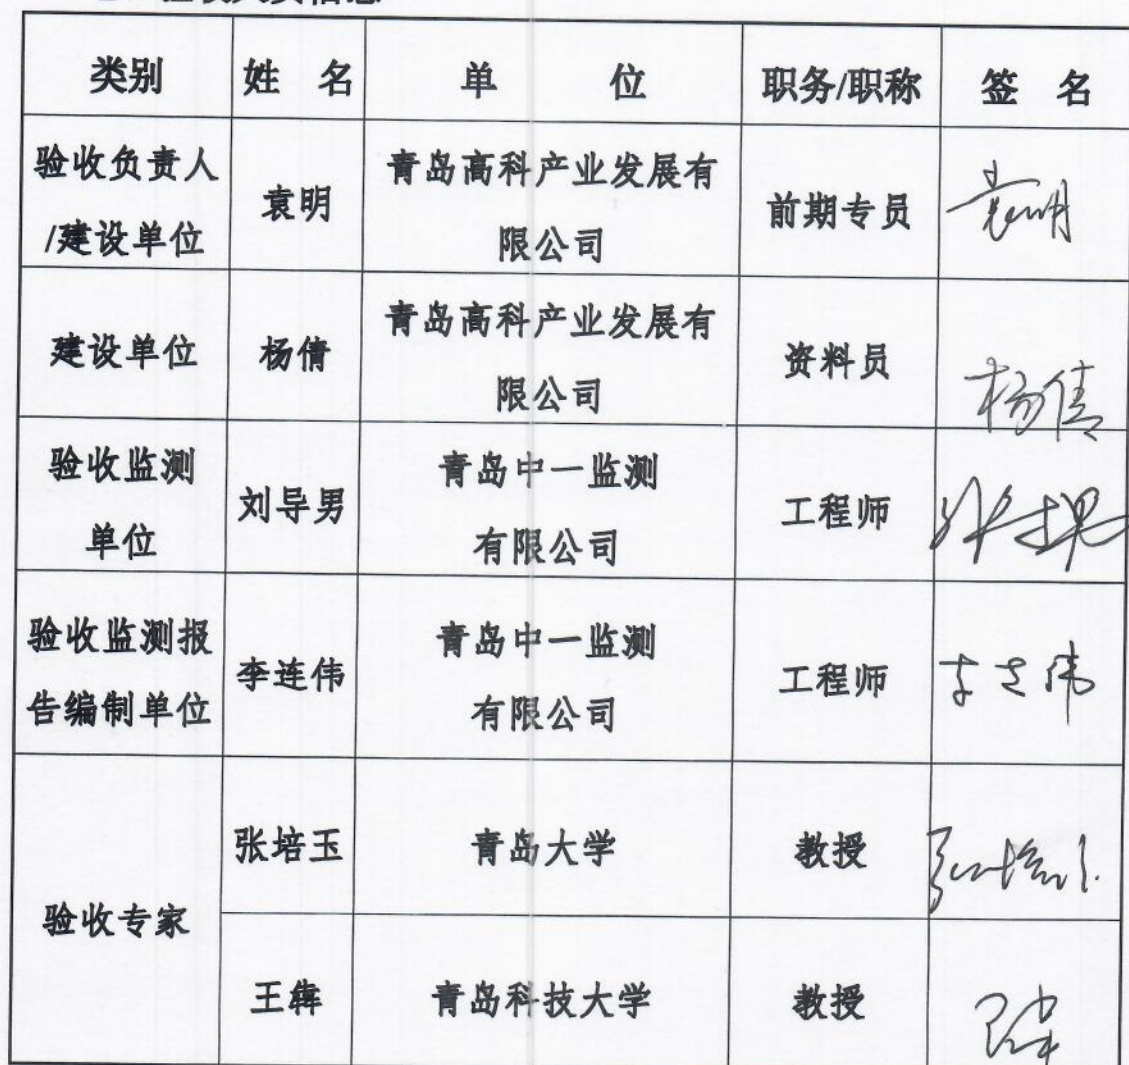 类别 姓 名 单 位 职务/职称 签 名
验收负责人
/建设单位
袁明
青岛高科产业发展有
限公司
前期专员
袁明
建设单位
杨倩
青岛高科产业发展有
限公司
资料员
杨倩
验收监测
单位
刘导男
青岛中一监测
有限公司
工程师
验收监测报
告编制单位
李连伟
青岛中一监测
有限公司
工程师
李连伟
验收专家
张培玉
青岛大学
教授
张培玉
王犇
青岛科技大学
教授